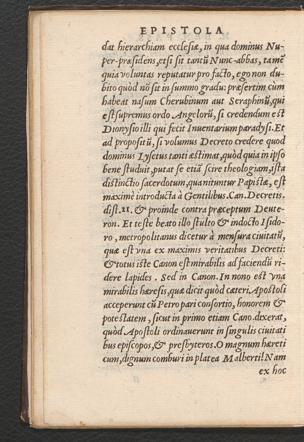 EPISTOLA
dat hierarchiam ecclesiæ, in qua dominus Nu-
per-præsidens, etsi sit tantũ Nunc-abbas, tamẽ
quia voluntas reputatur pro facto, ego non du-
bito quòd nõ sit in summo gradu: præsertim cum
habeat nasum Cherubinum aut Seraphinũ, qui
est supremus ordo Angelorũ, si credendum est
Dionysio illi qui fecit Inuentarium paradysi. Et
ad propositũ, si volumus Decreto credere quod
dominus Lysetus tanti æstimat, quòd quia in ipso
bene studuit, putat se etiã scire theologiam, ista
distinctio sacerdotum, qua nituntur Papistæ, est
maximè introducta à Gentilibus. Can. Decretis.
dist. 21. & proinde contra præceptum Deute-
ron. Et teste beato illo stulto & indocto Isido-
ro, metropolitanus dicetur à mensura ciuitatũ,
quæ est vna ex maximis veritatibus Decreti:
& totus iste Canon est mirabilis ad faciendũ ri-
dere lapides. Sed in Canon. In nono est vna
mirabilis hæresis, quæ dicit quòd cæteri Apostoli
acceperunt cũ Petro pari consortio, honorem &
potestatem, sicut in primo etiam Cano. dixerat,
quòd Apostoli ordinauerunt in singulis ciuitati
bus episcopos, & presbyteros. O magnum hæreti
cum, dignum comburi in platea Malberti! Nam
ex hoc